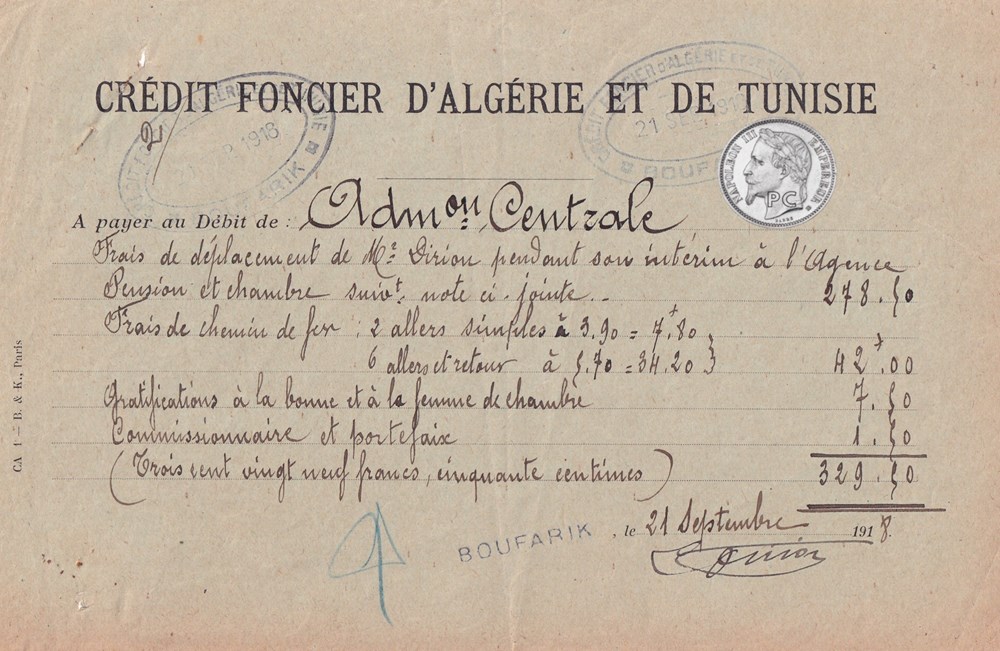 CRÉDIT FONCIER D'ALGÉRIE ET DE TUNISIE
2/
21 1918
BOUFARIK
21 SEP 191
NAPOLEON III EMPEREUR
PC
A payer au Débit de : Admon Centrale
Frais de déplacement de Mr Dirion pendant son intérim à l'Agence
Pension et chambre suivt. note ci-jointe.. 278.50
Frais de chemin de fer : 2 allers simples à 3.90 = 7.80
6 allers et retour à 5.70 = 34.20 } 42.00
Gratifications à la bonne et à la femme de chambre 7.50
Commissionnaire et portefaix 1.50
(Trois cent vingt neuf francs, cinquante centimes) 329.50
BOUFARIK, le 21 Septembre 1918.
CA 1 — B. & K., Paris